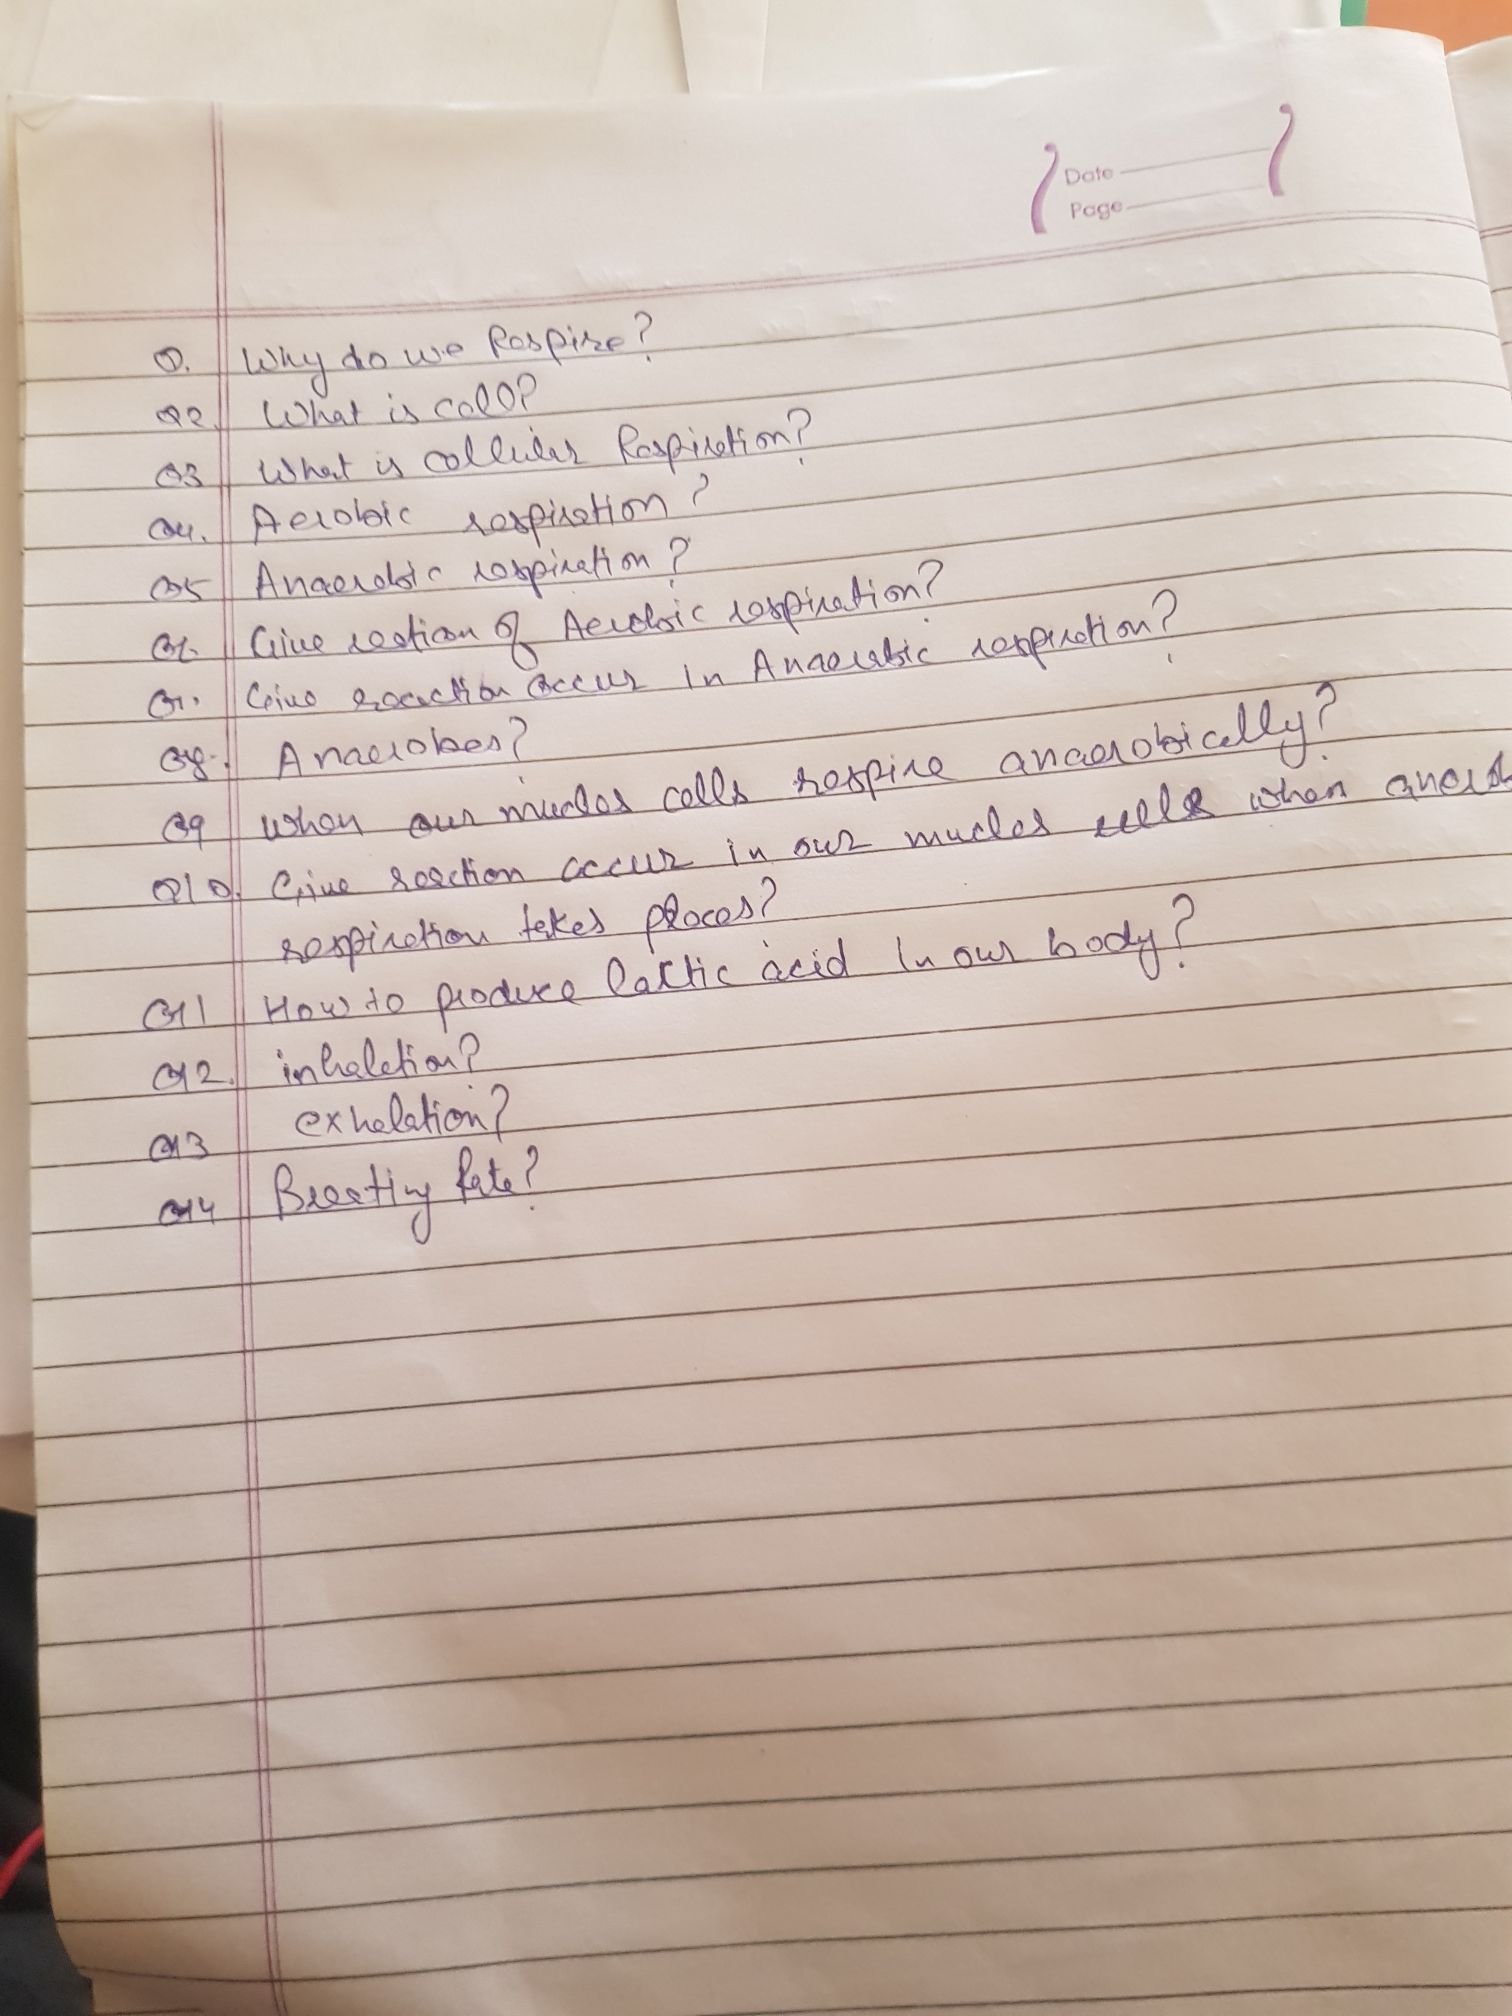 Date
Page
Q. Why do we Respire?
Q2. What is cell?
Q3 What is cellular Respiration?
Q4. Aerobic respiration?
Q5 Anaerobic respiration?
Q6. Give reation of Aerobic respiration?
Q7. Give reaction occur in Anaerobic respiration?
Q8. Anaerobes?
Q9 When our mucles cells respire anaerobically?
Q10. Give reaction occur in our mucles cells when
respiration takes places?
Q11 How to produce lactic acid in our body?
Q12. inhalation?
Q13 exhalation?
Q14 Breating Rate?